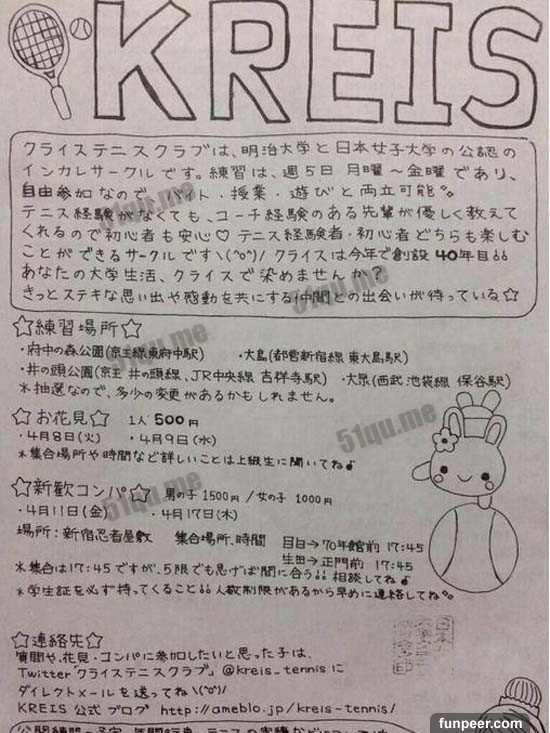 KREIS
クライステニスクラブは、明治大学と日本女子大学の公認の
インカレサークルです。練習は、週5日 月曜〜金曜であり、
自由参加なので、バイト・授業・遊びと両立可能
テニス経験がなくても、コーチ経験のある先輩が優しく教えて
くれるので初心者も安心♡ テニス経験者・初心者どちらも楽しむ
ことができるサークルです\(^o^)/ クライスは今年で創設40年目
あなたの大学生活、クライスで染めませんか?
きっとステキな思い出や感動を共にする仲間との出会いが待っている☆
☆練習場所☆
・府中の森公園(京王線東府中駅) ・大島(都営新宿線 東大島駅)
・井の頭公園(京王 井の頭線、JR中央線 吉祥寺駅) ・大泉(西武池袋線 保谷駅)
*抽選なので、多少の変更があるかもしれません。
☆お花見☆ 1人 500円
・4月8日(火) ・4月9日(水)
*集合場所や時間など詳しいことは上級生に聞いてね♪
☆新歓コンパ☆ 男の子 1500円 / 女の子 1000円
・4月11日(金) ・4月17日(木)
場所:新宿忍者屋敷 集合場所、時間 目白→70年館前 17:45
生田→正門前 17:45
*集合は17:45ですが、5限でも急げば間に合う 相談してね♪
*学生証を必ず持ってくること 人数制限があるから早めに連絡してね
☆連絡先☆
質問や、花見・コンパに参加したいと思った子は、
Twitter「クライステニスクラブ」@kreis_tennisに
ダイレクトメールを送ってね\(^o^)/
KREIS 公式ブログ http://ameblo.jp/kreis-tennis/
51qu.me
51qu.me
51qu.me
51qu.me
51qu.me
funpeer.com